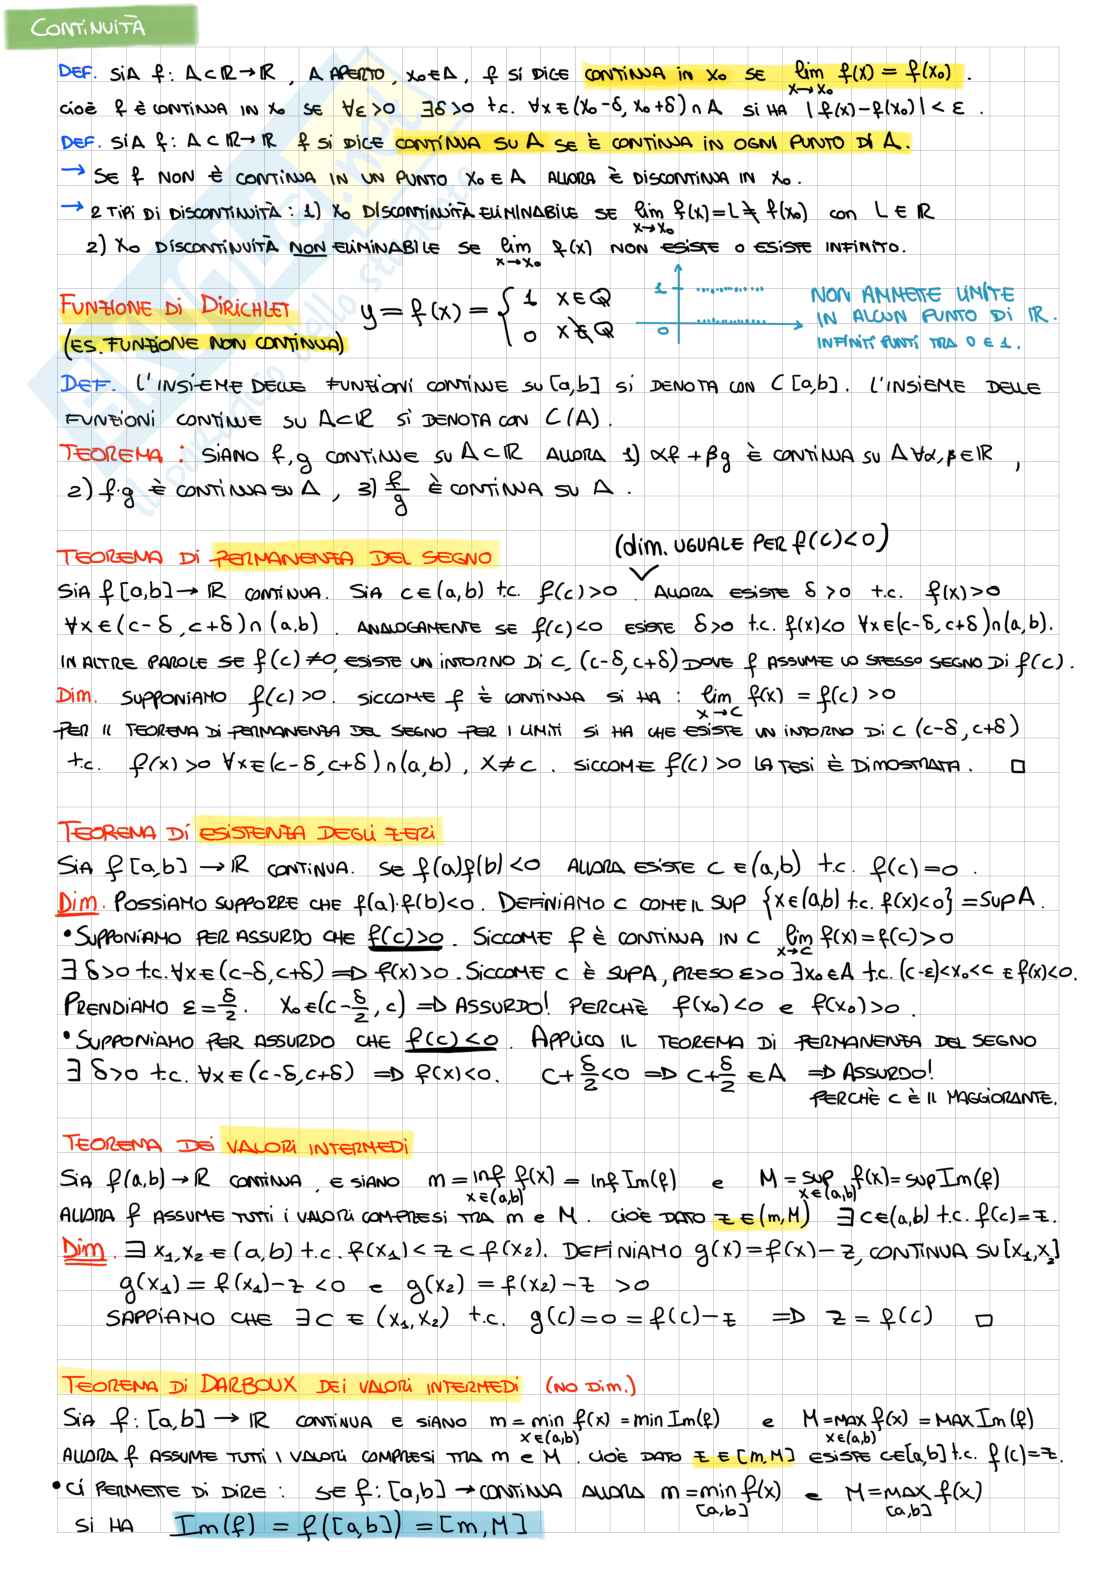 CONTINUITÀ
DEF. SIA f: A⊂ℝ→ℝ, A APERTO, x₀∈A, f SI DICE CONTINUA IN x₀ SE lim x→x₀ f(x) = f(x₀).
CIOÈ f È CONTINUA IN x₀ SE ∀ε>0 ∃δ>0 t.c. ∀x∈(x₀-δ, x₀+δ)∩A SI HA |f(x)-f(x₀)|<ε.
DEF. SIA f: A⊂ℝ→ℝ f SI DICE CONTINUA SU A SE È CONTINUA IN OGNI PUNTO DI A.
→ SE f NON È CONTINUA IN UN PUNTO x₀∈A ALLORA È DISCONTINUA IN x₀.
→ 2 TIPI DI DISCONTINUITÀ: 1) x₀ DISCONTINUITÀ ELIMINABILE SE lim x→x₀ f(x)=L≠f(x₀) CON L∈ℝ
2) x₀ DISCONTINUITÀ NON ELIMINABILE SE lim x→x₀ f(x) NON ESISTE O ESISTE INFINITO.
FUNZIONE DI DIRICHLET y=f(x)={ 1 x∈ℚ
0 x∉ℚ
(ES. FUNZIONE NON CONTINUA)
1
0
NON AMMETTE LIMITE
IN ALCUN PUNTO DI ℝ.
INFINITI PUNTI TRA 0 E 1.
DEF. L'INSIEME DELLE FUNZIONI CONTINUE SU [a,b] SI DENOTA CON C[a,b]. L'INSIEME DELLE
FUNZIONI CONTINUE SU A⊂ℝ SI DENOTA CON C(A).
TEOREMA: SIANO f,g CONTINUE SU A⊂ℝ ALLORA 1) αf+βg È CONTINUA SU A ∀α,β∈ℝ,
2) f·g È CONTINUA SU A, 3) f/g È CONTINUA SU A.
TEOREMA DI PERMANENZA DEL SEGNO
(dim. UGUALE PER f(c)<0)
SIA f[a,b]→ℝ CONTINUA. SIA c∈(a,b) t.c. f(c)>0. ALLORA ESISTE δ>0 t.c. f(x)>0
∀x∈(c-δ, c+δ)∩(a,b). ANALOGAMENTE SE f(c)<0 ESISTE δ>0 t.c. f(x)<0 ∀x∈(c-δ, c+δ)∩(a,b).
IN ALTRE PAROLE SE f(c)≠0, ESISTE UN INTORNO DI C, (c-δ, c+δ) DOVE f ASSUME LO STESSO SEGNO DI f(c).
Dim. SUPPONIAMO f(c)>0. SICCOME f È CONTINUA SI HA: lim x→c f(x) = f(c) >0
PER IL TEOREMA DI PERMANENZA DEL SEGNO PER I LIMITI SI HA CHE ESISTE UN INTORNO DI C (c-δ, c+δ)
t.c. f(x)>0 ∀x∈(c-δ, c+δ)∩(a,b), x≠c. SICCOME f(c)>0 LA TESI È DIMOSTRATA. □
TEOREMA DI ESISTENZA DEGLI ZERI
SIA f[a,b]→ℝ CONTINUA. SE f(a)f(b)<0 ALLORA ESISTE c∈(a,b) t.c. f(c)=0.
Dim. POSSIAMO SUPPORRE CHE f(a)·f(b)<0. DEFINIAMO C COME IL SUP {x∈(a,b) t.c. f(x)<0}=SUP A.
• SUPPONIAMO PER ASSURDO CHE f(c)>0. SICCOME f È CONTINUA IN C lim x→c f(x)=f(c)>0
∃δ>0 t.c. ∀x∈(c-δ, c+δ) => f(x)>0. SICCOME C È SUP A, PRESO ε>0 ∃x₀∈A t.c. (c-ε)<x₀<c E f(x)<0.
PRENDIAMO ε=δ/2. x₀∈(c-δ/2, c) => ASSURDO! PERCHÈ f(x₀)<0 e f(x₀)>0.
• SUPPONIAMO PER ASSURDO CHE f(c)<0. APPLICO IL TEOREMA DI PERMANENZA DEL SEGNO
∃δ>0 t.c. ∀x∈(c-δ, c+δ) => f(x)<0. c+δ/2<0 => c+δ/2 ∈A => ASSURDO!
PERCHÈ C È IL MAGGIORANTE.
TEOREMA DEI VALORI INTERMEDI
SIA f(a,b)→ℝ CONTINUA, E SIANO m=inf x∈(a,b) f(x) = inf Im(f) e M=sup x∈(a,b) f(x)=sup Im(f)
ALLORA f ASSUME TUTTI I VALORI COMPRESI TRA m e M. CIOÈ DATO z∈(m,M) ∃c∈(a,b) t.c. f(c)=z.
Dim. ∃x₁,x₂∈(a,b) t.c. f(x₁)<z<f(x₂). DEFINIAMO g(x)=f(x)-z, CONTINUA SU [x₁,x₂]
g(x₁)=f(x₁)-z<0 e g(x₂)=f(x₂)-z>0
SAPPIAMO CHE ∃c∈(x₁,x₂) t.c. g(c)=0=f(c)-z => z=f(c) □
TEOREMA DI DARBOUX DEI VALORI INTERMEDI (NO DIM.)
SIA f: [a,b]→ℝ CONTINUA E SIANO m=min x∈(a,b) f(x)=min Im(f) e M=MAX x∈(a,b) f(x)=MAX Im(f)
ALLORA f ASSUME TUTTI I VALORI COMPRESI TRA m e M. CIOÈ DATO z∈[m,M] ESISTE c∈[a,b] t.c. f(c)=z.
• CI PERMETTE DI DIRE: SE f: [a,b]→CONTINUA ALLORA m=min [a,b] f(x) e M=MAX [a,b] f(x)
SI HA Im(f)=f([a,b])=[m,M]